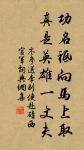 功名祗向馬上取
真是英雄一丈夫
岑參送李副使赴磧西
官軍詞典網集